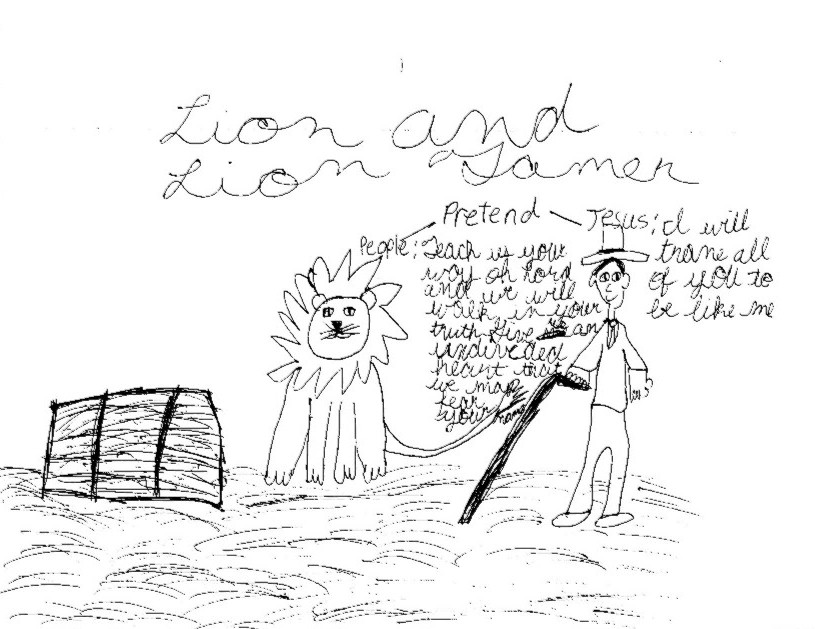 Lion and
Lion Tamer
Pretend
People:
Teach us your
way oh lord
and we will
walk in your
truth Give us an
undiveded
heart that
we may
fear
your name
Jesus: I will
trane all
of you to
be like me